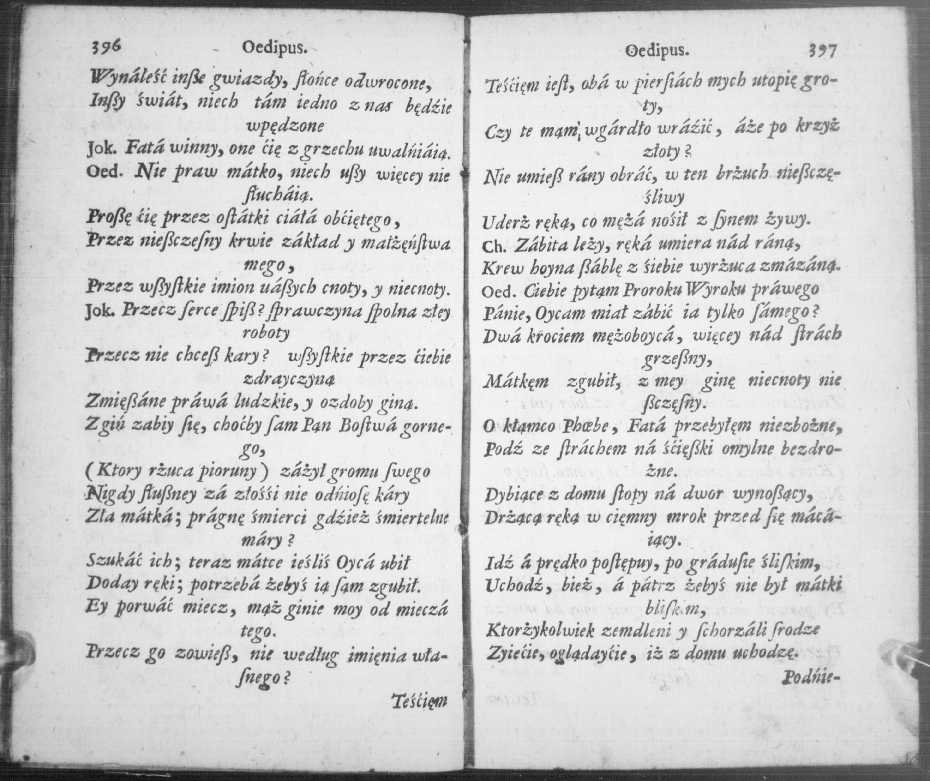 396 Oedipus.
Wynáleść inße gwiazdy, ſłońce odwrocone,
Inßy świát, niech tám iedno z nas będźie
wpędzone
Jok. Fatá winny, one ćię z grzechu uwalńiáią.
Oed. Nie praw mátko, niech ußy więcey nie
ſłucháią.
Proßę ćię przez oſtátki ciáłá obćiętego,
Przez nießczeſny krwie zákład y małżęńſtwa
mego,
Przez wßyſtkie imion uáßych cnoty, y niecnoty.
Jok. Przecż ſerce ſpiß? ſprawczyna ſpolna złey
roboty
Przecz nie chceß kary? wßyſtkie przez ćiebie
zdrayczyną
Zmięßáne práwá ludzkie, y ozdoby giną.
Zgiń zabiy ſię, choćby ſam Pąn Boſtwá gorne-
go,
(Ktory rżuca pioruny) záżył gromu ſwego
Nigdy ſłußney zá złośśi nie odńioſę káry
Zła mátká; prágnę śmierci gdźież śmiertelne
máry?
Szukáć ich; teraz mátce ieśliś Oycá ubił
Doday ręki; potrzebá żebyś ią ſąm zgubił.
Ey porwáć miecz, mąż ginie moy od mieczá
tego.
Przecz go zowieß, nie według imięnia wła-
ſnego?
Teśćięm
Oedipus. 397
Teśćięm ieſt, obá w pierſiách mych utopię gro-
ty,
Czy te mąm, wgárdło wráźić, áże po krzyż
złoty?
Nie umieß rány obráć, w ten brżuch nießczę-
śliwy
Uderż ręką, co mężá nośił z ſynem żywy.
Ch. Zábita leży, ręká umiera nád ráną,
Krew hoyna ßáblę z śiebie wyrżuca zmázáną.
Oed. Ciebie pytąm Proroku Wyroku práwego
Pánie, Oycam miał zábić ia tylko ſámego?
Dwá krociem mężoboycá, więcey nád ſtrách
grzeßny,
Mátkęm zgubił, z mey ginę niecnoty nie
ßczęſny.
O kłąmco Phœbe, Fatá przebyłęm niezbożne,
Podź ze ſtráchem ná śćięßki omylne bezdro-
żne.
Dybiące z domu ſtopy ná dwor wynoßący,
Drżącą ręką w cięmny mrok przed ſię mácá-
iący.
Idź á prędko poſtępuy, po gráduſie śliſkim,
Uchodź, bież, á pátrz żebyś nie był mátki
bliſkim,
Ktorżykolwiek zemdleni y ſchorzáli ſrodze
Zyiećie, oglądayćie, iż z domu uchodzę.
Podńie-